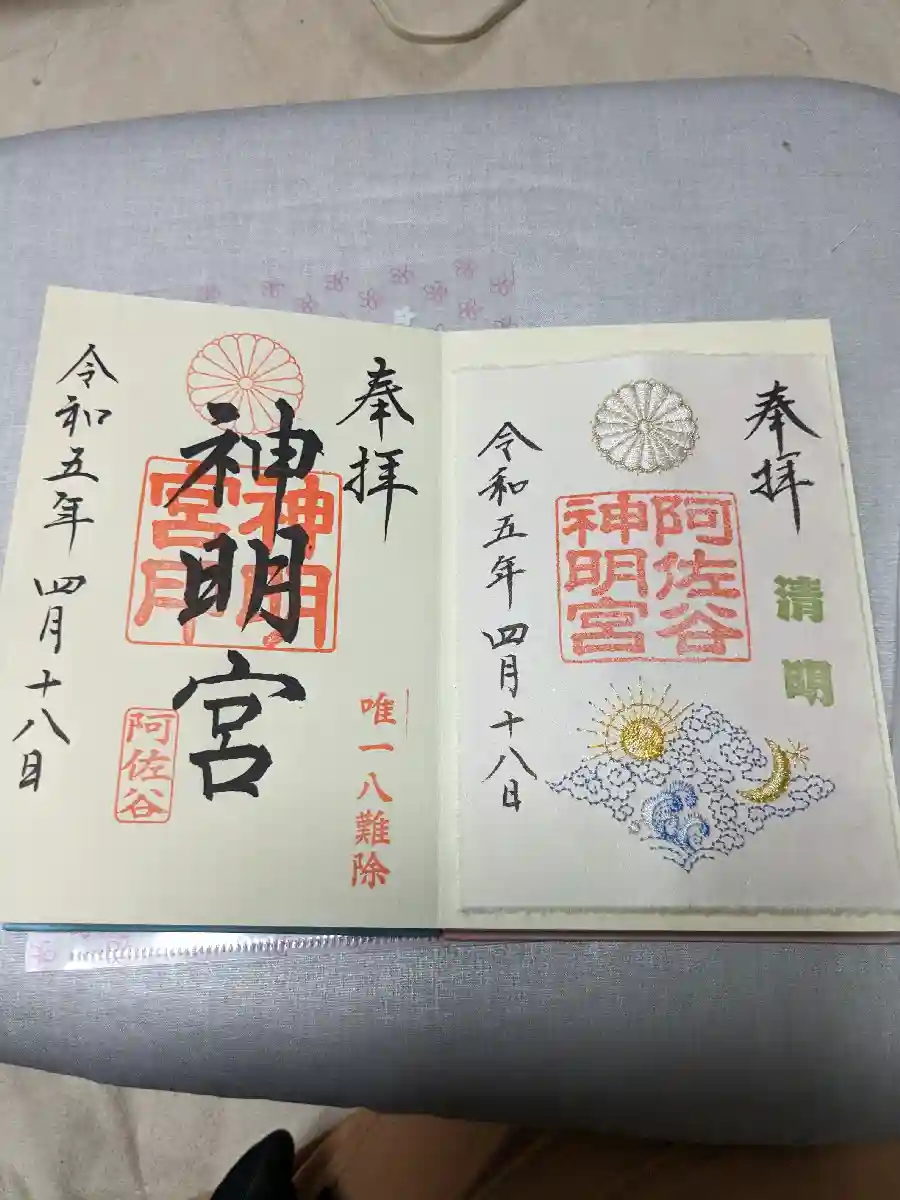 奉拝
清明
阿佐谷
神明宮
令和五年 四月十八日
奉拝
唯一八難除
神明宮
神明
宮
阿佐谷
令和五年 四月十八日